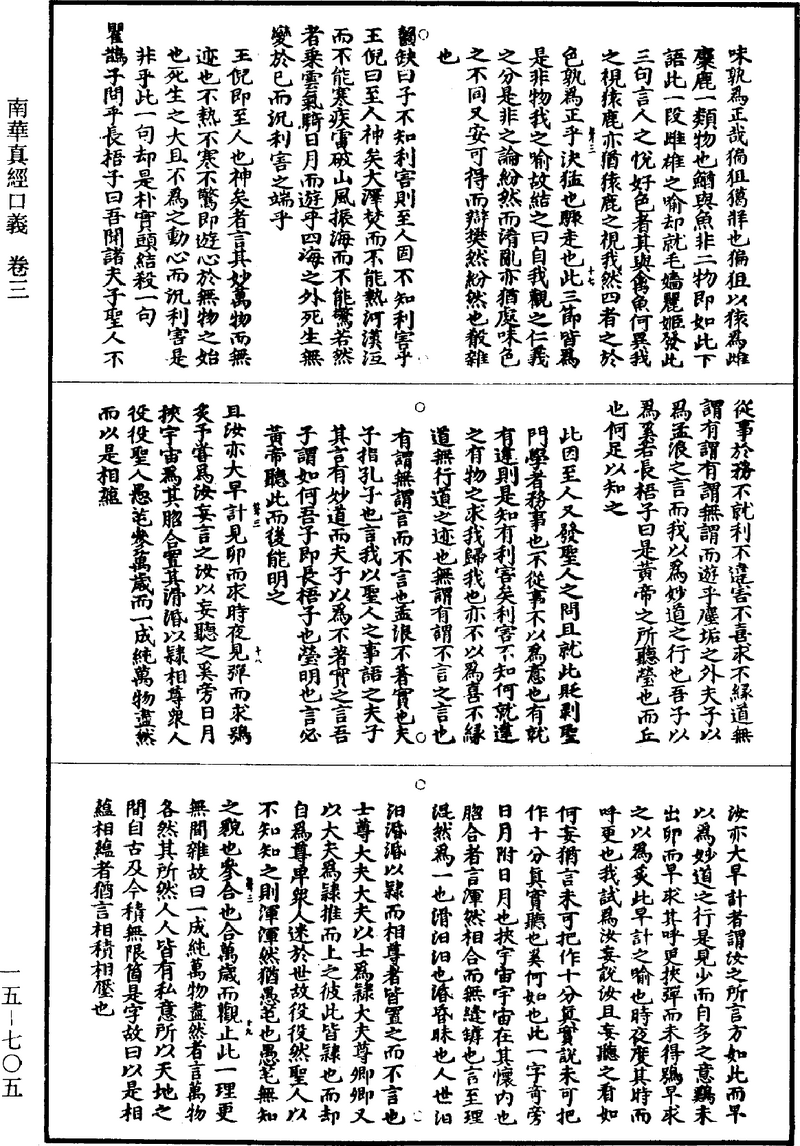 南華真經口義　卷三
味孰為正哉猵狙獦牂也猵狙以猿為雌
麋鹿一類物也鰌與魚非二物即如此下
語此一段雌雄之喻却就毛嬙麗姬發此
三句言人之悅好色者其與禽魚何異我
之視猿鹿亦猶猿鹿之視我然四者之於
色孰為正乎決猛也驟走也此三節皆為
是非物我之喻故結之曰自我觀之仁義
之分是非之論紛然而淆亂亦猶處味色
之不同又安可得而辯樊然紛然也殽雜
也
齧缺曰子不知利害則至人固不知利害乎
王倪曰至人神矣大澤焚而不能熱河漢沍
而不能寒疾雷破山風振海而不能驚若然
者乘雲氣騎日月而遊乎四海之外死生無
變於已而況利害之端乎
王倪即至人也神矣者言其妙萬物而無
迹也不熱不寒不驚即遊心於無物之始
也死生之大且不為之動心而況利害是
非乎此一句却是朴實頭結殺一句
瞿鵲子問乎長梧子曰吾聞諸夫子聖人不
從事於務不就利不違害不喜求不緣道無
謂有謂有謂無謂而遊乎塵垢之外夫子以
為孟浪之言而我以為妙道之行也吾子以
為奚若長梧子曰是黃帝之所聽瑩也而丘
也何足以知之
此因至人又發聖人之問且就此貶剥聖
門學者務事也不從事不以為意也有就
有違則是知有利害矣利害不知何就違
之有物之求我歸我也亦不以為喜不緣
道無行道之迹也無謂有謂不言之言也
有謂無謂言而不言也孟浪不著實也夫
子指孔子也言我以聖人之事語之夫子
其言有妙道而夫子以為不著實之言吾
子謂如何吾子即長梧子也瑩明也言必
黃帝聽此而後能明之
且汝亦大早計見卵而求時夜見彈而求鴞
炙予嘗為汝妄言之汝以妄聽之奚旁日月
挾宇宙為其脗合置其滑湣以隸相尊眾人
役役聖人愚芚參萬歲而一成純萬物盡然
而以是相蘊
汝亦大早計者謂汝之所言方如此而早
以為妙道之行是見少而自多之意鷄未
出卵而早求其呼更挾彈而未得鴞早求
之以為炙此早計之喻也時夜度其時而
呼更也我試為汝妄說汝且妄聽之看如
何妄猶言未可把作十分真實說未可把
作十分真實聽也奚何如也此一字奇旁
日月附日月也挾宇宙宇宙在其懷內也
脗合者言渾然相合而無縫罅也言至理
混然為一也滑汨汨也湣昏昧也人世汨
汨湣湣以隸而相尊者皆置之而不言也
士尊大夫大夫以士為隸大夫尊卿卿又
以大夫為隸推而上之彼此皆隸也而却
自為尊卑眾人迷於世故役役然聖人以
不知知之則渾渾然猶愚芚也愚芚無知
之貌也參合也合萬歲而觀止此一理更
無間雜故曰一成純萬物盡然者言萬物
各然其所然人人皆有私意所以天地之
間自古及今積無限箇是字故曰以是相
蘊相蘊者猶言相積相壓也
一五－七〇五